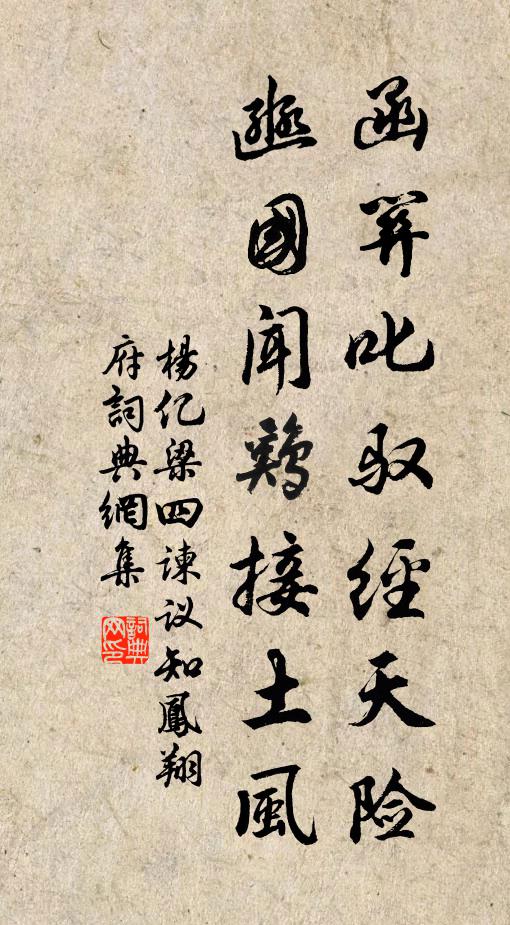 函关叱驭經天险
豳國闻鷄接土風
楊亿梁四諫议知鳳翔
府詞典網集
詞典
网印